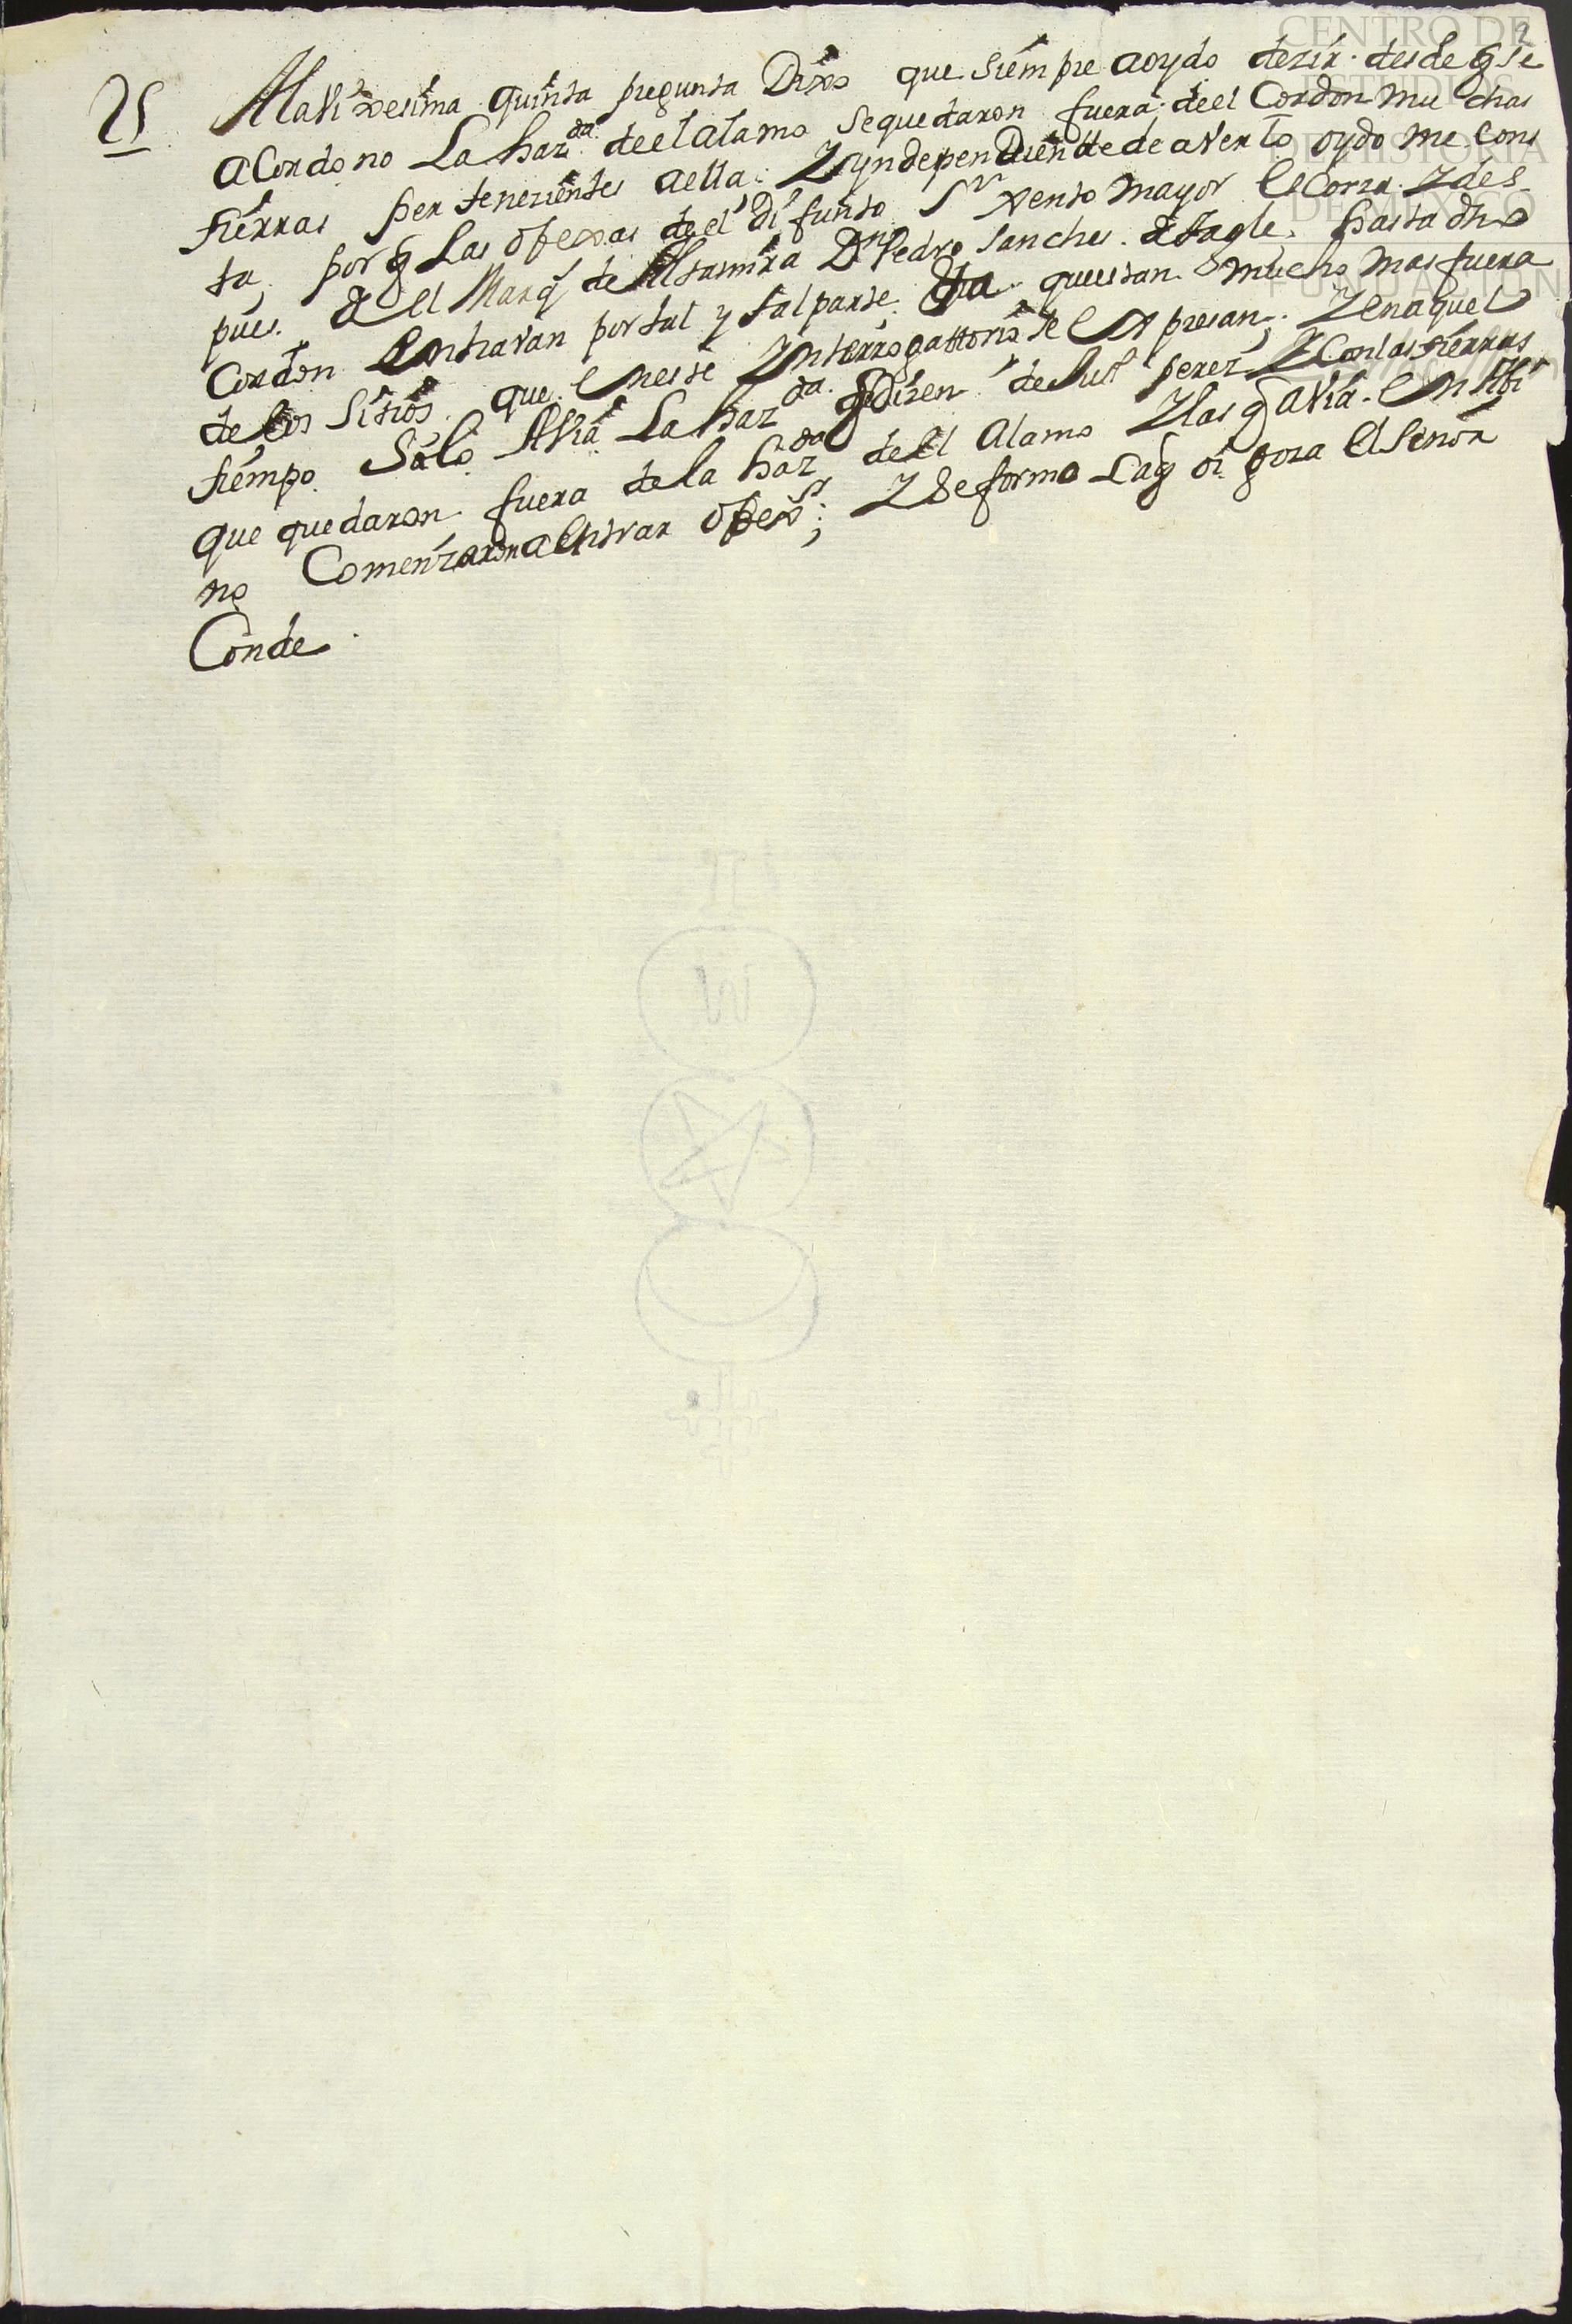 2
CENTRO DE
ESTUDIOS
DE HISTORIA
DE MEXICO
FUNDACION
25 Alavixesima quinta pregunta Dixo que siempre aoydo dezir. desde q se
aCordono La haz.da deelalamo sequedaron fuera deel Cordon muchas
tierras pertenezientes aella. Yyndependientte de averlo oydo me Cons
ta, porq Las obexas deel difunto Sr xento mayor Escorza. Y des
pues. del Marq.s de Altamira Dn Pedro Sanches. de tagle. hasta dho
Cordon Entravan por tal y tal parte. que estan mucho mas fuera
de los Sitios. que Eneste Ynterrogattorio se Expresan, Yenaquel
tiempo. Solo Avia La haz.da q dizen de perez Y Conlas tierras
que quedaron fuera de la haz.da deel Alamo Ylas q avia. En
no Comenzaron aEntrar obexs; Y se formo La q oi goza El Señor
Conde.